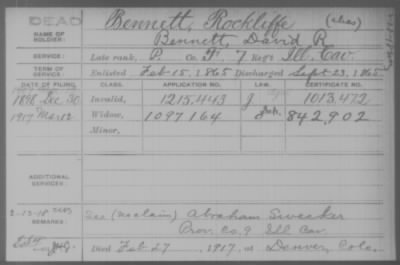 DEAD
NAME OF SOLDIER:
Bennett, Rockliffe (alias)
Bennett, David R
SERVICE:
Late rank, P. Co. F. 7 Reg't Ill. Cav.
TERM OF SERVICE
Enlisted Feb 15, 1865 Discharged Sept 23, 1865
DATE OF FILING. CLASS. APPLICATION NO. LAW. CERTIFICATE NO.
1898 Dec 30 Invalid, 1215,443 J 1013,472
1917 Mar 12 Widow, 1097164 842,902
Minor,
ADDITIONAL SERVICES:
2-13-18
REMARKS:
See (no claim) Abraham Swecker
Prov. Co. 9 Ill Cav.
Died Feb 27, 1917, at Denver, Colo.